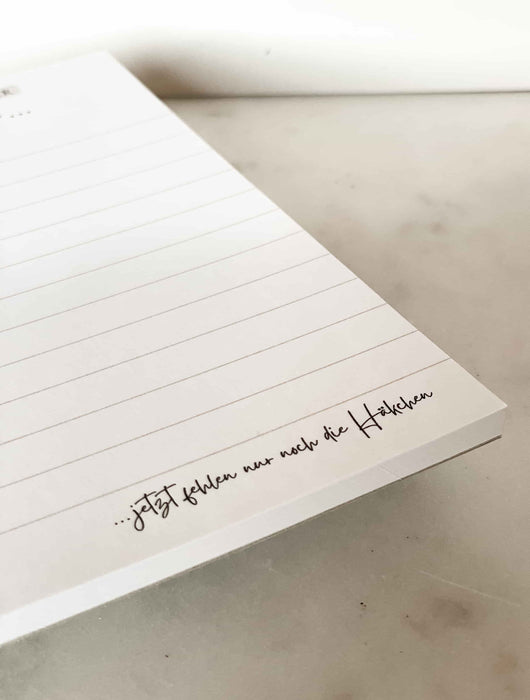 ...jetzt fehlen nur noch die Häkchen